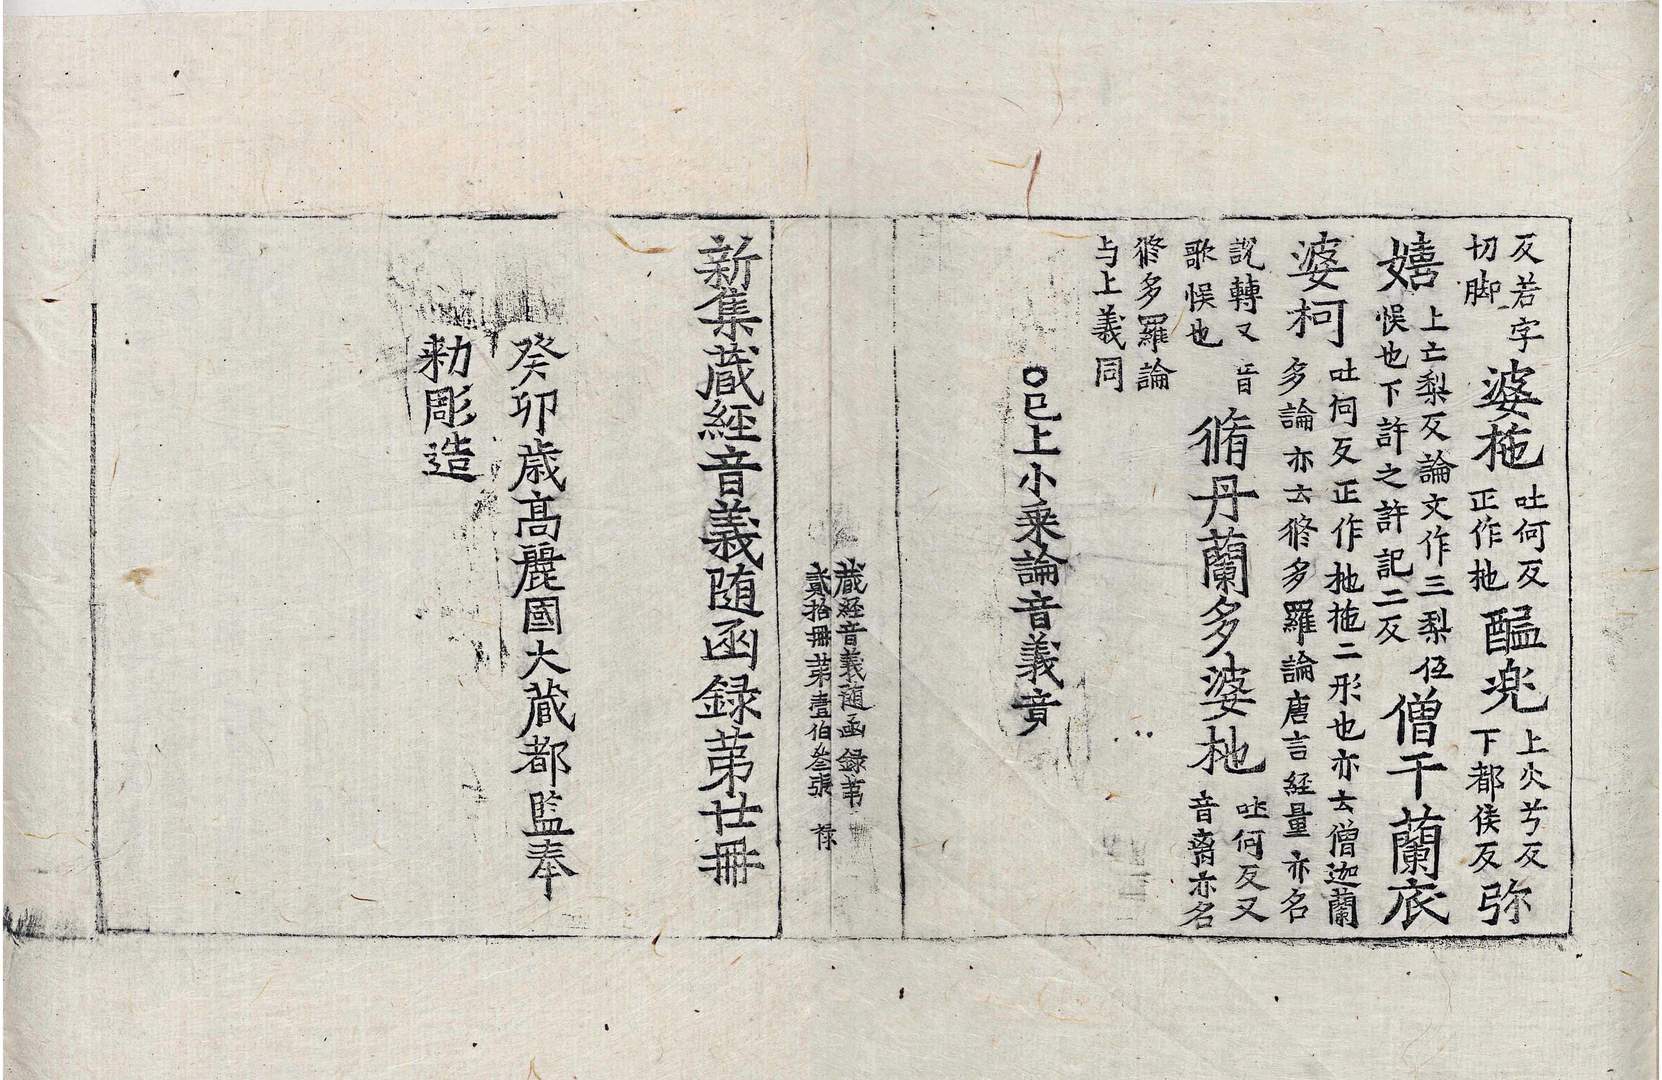 反若字切脚婆柂吐何反正作扡醧兠上火兮反下都侯反弥
嬉上亡梨反論文作三梨伍悮也下許之許記二反僧干蘭衣
婆柯吐何反正作扡拖二形也亦云僧迦蘭多論亦云修多羅論唐言經量亦名
說轉又音歌悮也脩丹蘭多婆扡吐何反又音亦名
修多羅論与上義同
○已上小乘論音義竟
藏經音義随函録苐
貳拾冊苐壹伯叁張 禄
新集藏經音義随函録苐廿冊
癸卯歳高麗國大藏都監奉
勑彫造